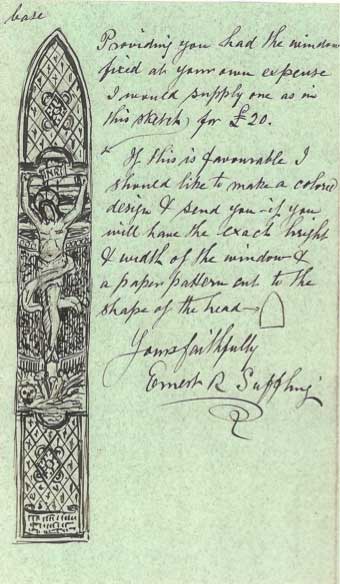 base
Providing you had the window
fixed at your own expense
I would supply one as in
this sketch, for £20.
If this is favourable I
should like to make a colored
design & send you if you
will have the exact hight
& width of the window &
a paper pattern cut to the
shape of the head
Yours faithfully
Ernest R Suffling
INRI